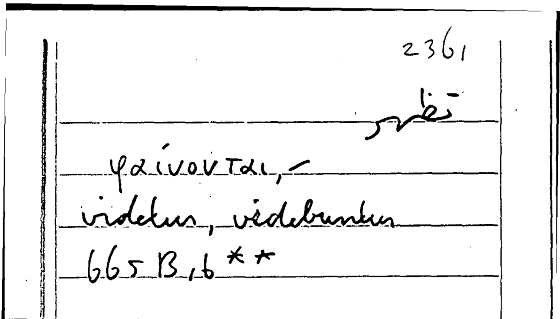 2361
φαίνονται, –
videtur, videbuntur
665 B, b **